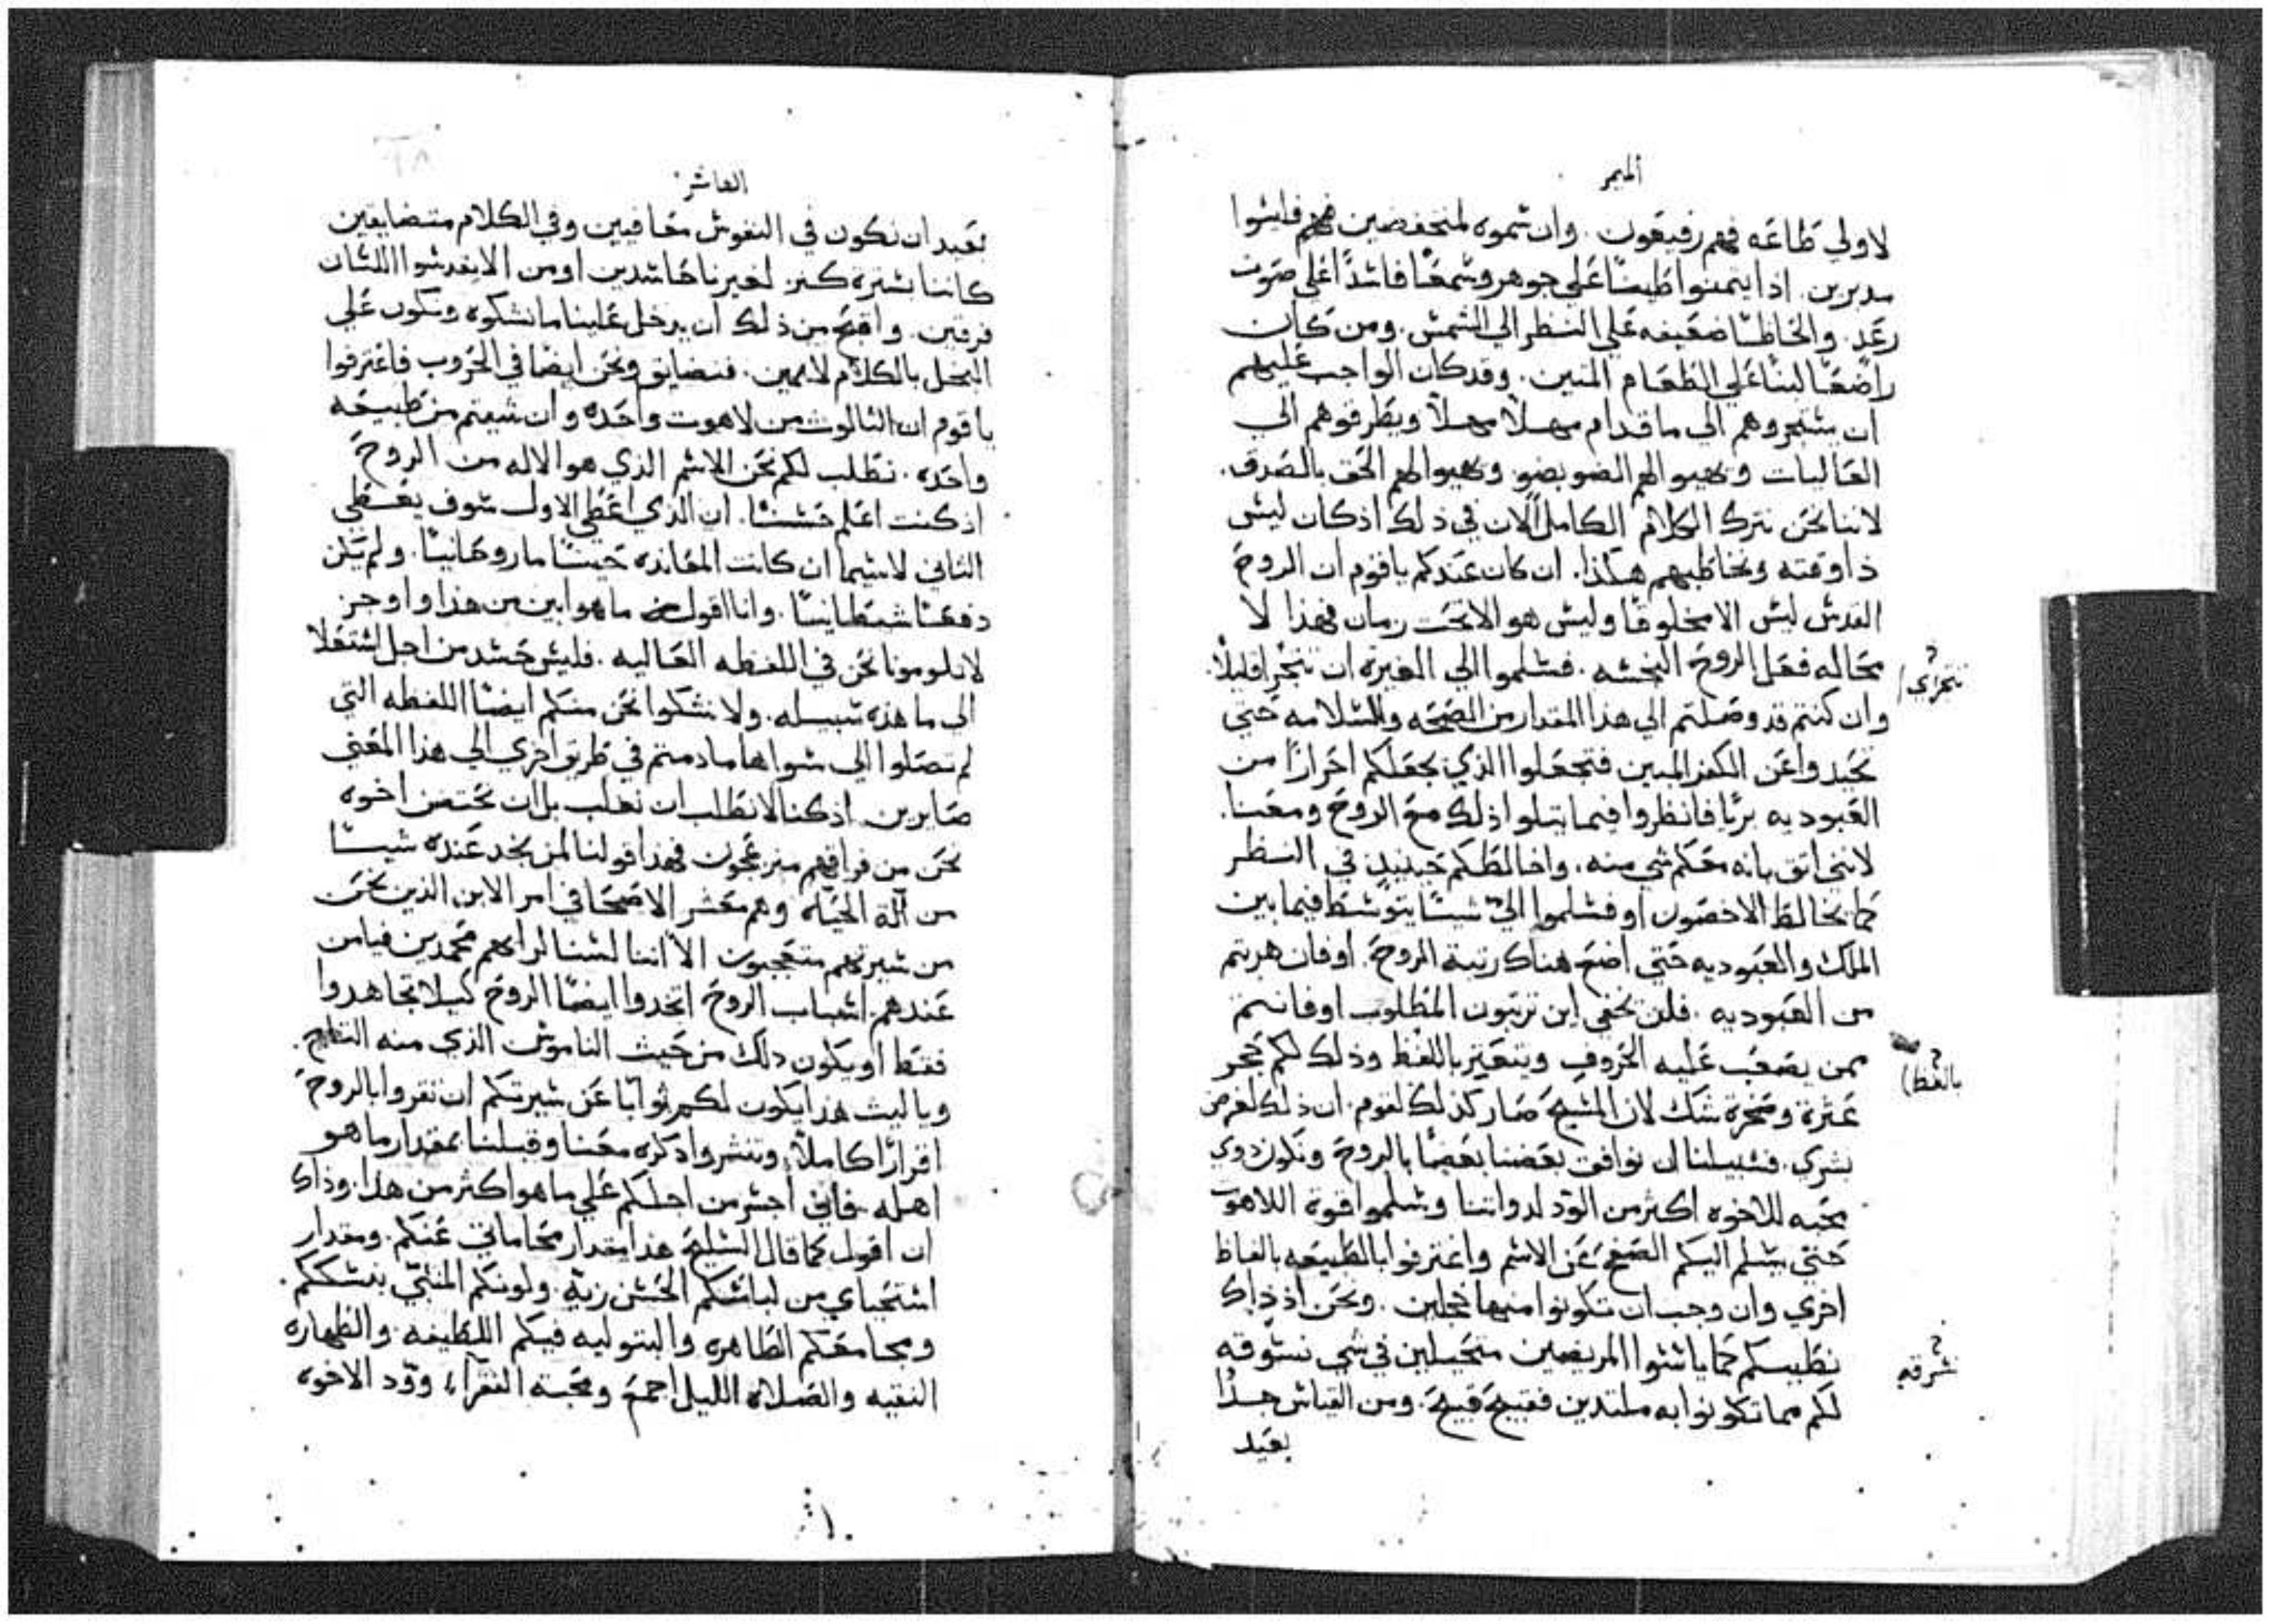 الميمر
لاولي طاعه فهم رفيعون. وان سموه لمنخفضين فهم فايسوا
مدبرين. اذا يتمنوا طبعنا علي جوهر وسمعنا فاسدًا علي صوت
رعد. والحاظنا ضعيفه علي النظر الي الشمس. ومن كان
راضعًا لبنًا علي الطعام المتين. وقد كان الواجب عليهم
ان يستجروهم الي ما قدام مهلاً مهلاً ويطرقوهم الي
العاليات ويهبوا لهم الضو بضو ويهبوا لهم الحق بالصدق.
لاننا نحن نترك الكلام الكامل الان في ذلك اذ كان ليس
ذا وقته ونخاطبهم هكذا. ان كان عندكم ياقوم ان الروح
القدس ليس الا مخلوقًا وليس هو الا تحت زمان فهذا لا
محاله فعل الروح النجسه. فسلموا الي الغيرة ان نتجرا قليلاً.
نتجراي
وان كنتم قد وصلتم الي هذا المقدار من الصحه والسلامه حتي
تحيدوا عن الكفر المبين فتجعلوا الذي يجعلكم احرارًا من
العبوديه بريًا فانظروا فيما يتلوا ذلك مع الروح ومعنا.
لانني اثق بانه معكم شي منه. واخالطكم حينيذ في النظر
كما يخالط الاخصون او فسلموا اليّ شيئًا يتوسط فيما بين
الملك والعبوديه حتي اضع هناك رتبة الروح. او فان هربتم
من العبوديه. فلن يخفي اين ترتبون المطلوب او فانتم
ممن يصعب عليه الحروف ويتعير باللفظ وذلك لكم حجر
بالفظ
عثرة وصخرة شك لان المسيح صار كذلك لقوم. ان ذلك لعرض
بشري. فسبيلنا ان نوافق بعضنا بعضًا بالروح ونكون ذوي
محبه للاخوه اكثر من الود لذواتنا وسلموا قوة اللاهوت
حتي يسلم اليكم الصفح عن الاسم واعترفوا بالطبيعه بالفاظ
اخري وان وجب ان تكونوا منها خجلين. ونحن اذ ذاك
نطبيكم كما ياسوا المريضين متحيلين في شي نسوقه
نسرقه
لكم مما تكونوا به ملتدين فقبيح قبيح. ومن القياس جدًا
بعيد
العاشر
بعيد ان نكون في النفوس معافيين وفي الكلام متضايقين
كاننا بسترة كنز لغيرنا حاسدين او من الا يقدسوا اللسان
فرقين. واقبح من ذلك ان يدخل علينا ما نشكوه ونكون علي
البخل بالكلام لايمين. فنضايق ونحن ايضًا في الحروب فاعترفوا
ياقوم ان الثالوث من لاهوت واحده وان شيتم من طبيعه
واحده. نطلب لكم نحن الاسم الذي هو الاله من الروح
اذ كنت اعلم حسنًا. ان الذي اعطي الاول سوف يعطي
الثاني لاسيما ان كانت المعانده حينًا ما روحانيًا. ولم تكن
دفعًا شيطانيًا. وانا اقول ما هو ابين من هذا واوجز
لا تلومونا نحن في اللفظه العاليه. فليس حسد من اجل استعلا
الي ما هذه سبيله. ولا نشكوا نحن منكم ايضًا اللفظه التي
لم تصلوا الي سواها ما دمتم في طريق اخري الي هذا المعني
صايرين. اذ كنا لا نطلب ان نغلب بل ان نحتضن اخوه
نحن من فراقهم منزعجون فهذا قولنا لمن يجد عنده شيئًا
من آلة الحياه وهم معشر الاصحا في امر الابن الذين نحن
من سيرتهم متعجبون الا اننا لسنا لرايهم محمدين فيا من
عندهم اسباب الروح اتخدوا ايضًا الروح كيلا تجاهدوا
فقط او يكون ذلك من حيث الناموس الذي منه التاج.
وياليث هذا يكون لكم ثوابًا عن سيرتكم ان تقروا بالروح
اقرارًا كاملاً وتنشروا ذكره معنا وقبلنا بمقدار ما هو
اهله. فاني اجسر من اجلكم علي ما هو اكثر من هذا. وذاك
ان اقول كما قال السليح هذا مقدار محاماتي عنكم. ومقدار
استحياي من لباسكم الخشن زيّه. ولونكم المنبي بنسككم.
ومجامعكم الطاهره والبتوليه فيكم اللطيفه والطهاره
النقيه والصلاة الليل اجمع ومحبة الفقرآء وودّ الاخوه